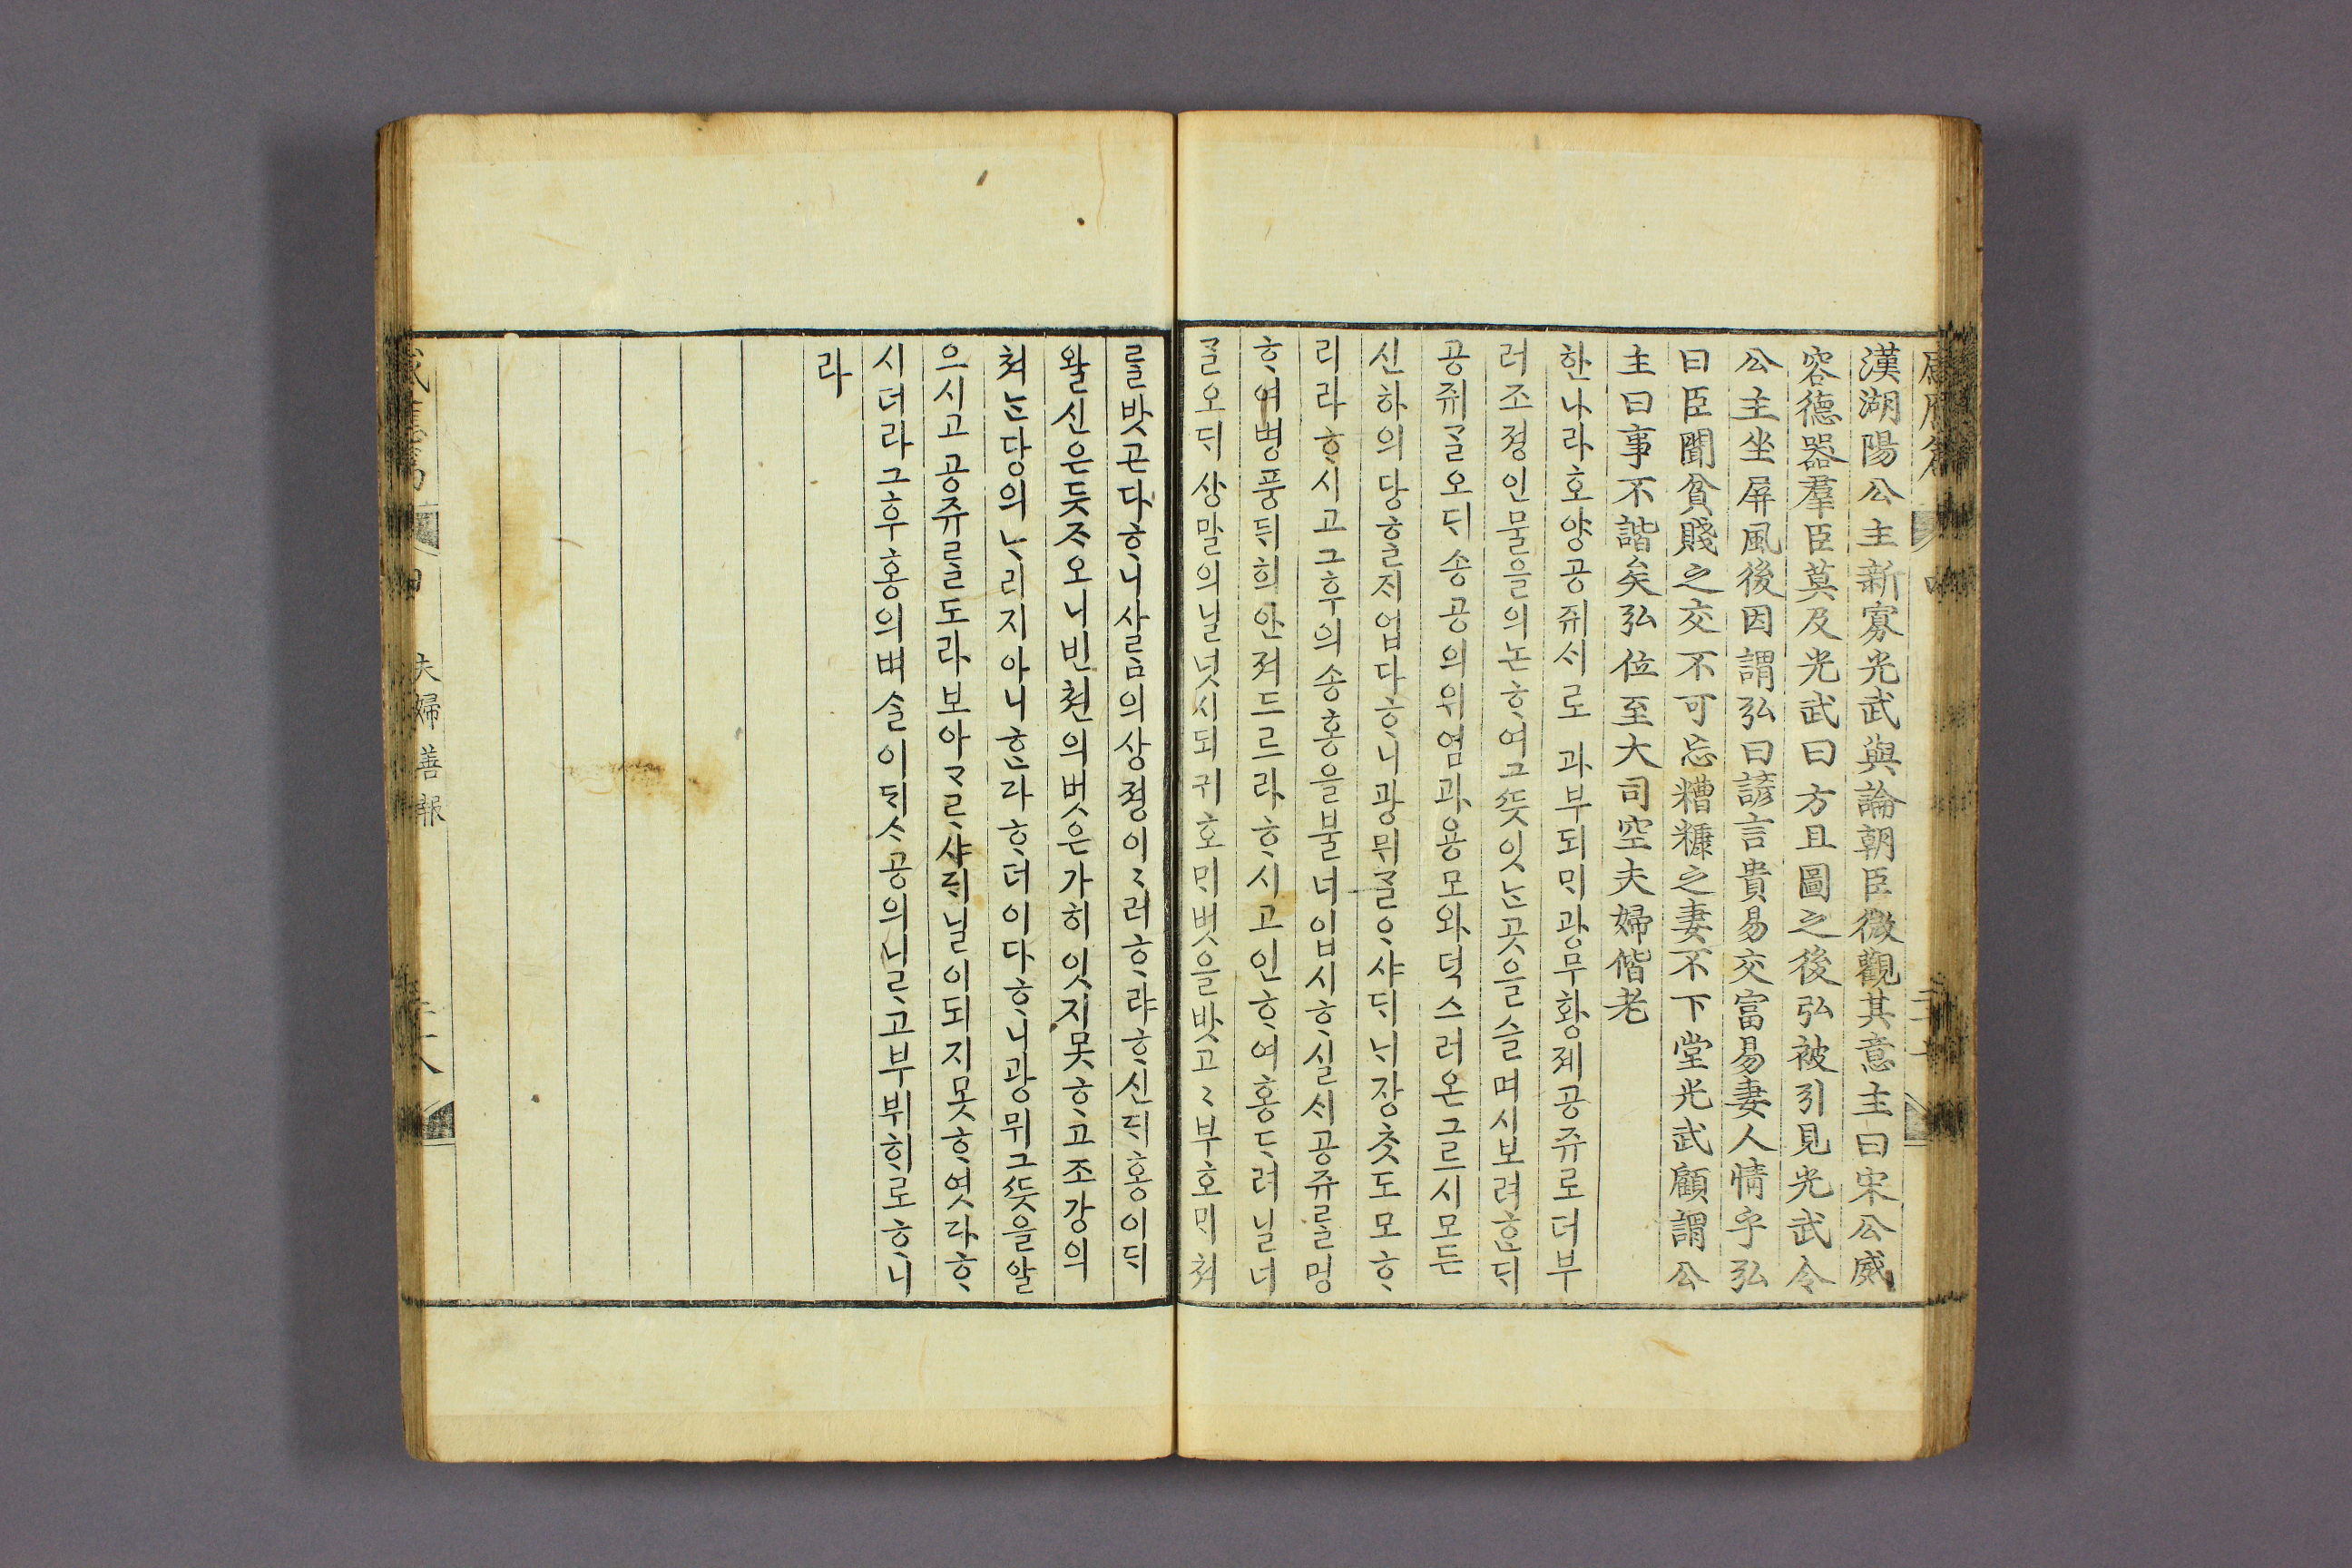 漢湖陽公主新寡光武與論朝臣微觀其意主曰宋公威
容德器羣臣莫及光武曰方且圖之後弘被引見光武令
公主坐屏風後因謂弘曰諺言貴易交富易妻人情乎弘
曰臣聞貧賤之交不可忘糟糠之妻不下堂光武顧謂公
主曰事不諧矣弘位至大司空夫婦偕老
한나라호양공쥐ᄉᆡ로과부되ᄆᆡ광무황졔공쥬로더부
러조졍인물을의논ᄒᆞ여그ᄯᅳᆺ잇ᄂᆞᆫ곳을슬며시보려ᄒᆞᆫᄃᆡ
공쥐ᄀᆞᆯ오ᄃᆡ송공의위엄과용모와덕스러온그르시모든
신하의당ᄒᆞᆯᄌᆡ업다ᄒᆞ니광뮈ᄀᆞᆯᄋᆞ샤ᄃᆡᄂᆡ장ᄎᆞᆺ도모ᄒᆞ
리라ᄒᆞ시고그후의송홍을불너입시ᄒᆞ실ᄉᆡ공쥬를명
ᄒᆞ여병풍뒤희안져드르라ᄒᆞ시고인ᄒᆞ여홍ᄃᆞ려닐너
ᄀᆞᆯ오ᄃᆡ상말의닐넛시되귀호ᄆᆡ벗을밧고〻부호ᄆᆡ쳐
를밧곤다ᄒᆞ니사ᄅᆞᆷ의상졍이〻러ᄒᆞ랴ᄒᆞ신ᄃᆡ홍이ᄃᆡ
왈신은듯ᄌᆞ오니빈쳔의벗은가히잇지못ᄒᆞ고조강의
쳐ᄂᆞᆫ당의ᄂᆞ리지아니ᄒᆞᆫ라ᄒᆞ더이다ᄒᆞ니광뮈그ᄯᅳᆺ을알
으시고공쥬를도라보아ᄀᆞᄅᆞ샤ᄃᆡ닐이되지못ᄒᆞ엿라ᄒᆞ
시더라그후홍의벼슬이ᄃᆡᄉᆞ공의니ᄅᆞ고부뷔ᄒᆡ로ᄒᆞ니
라
夫婦善報